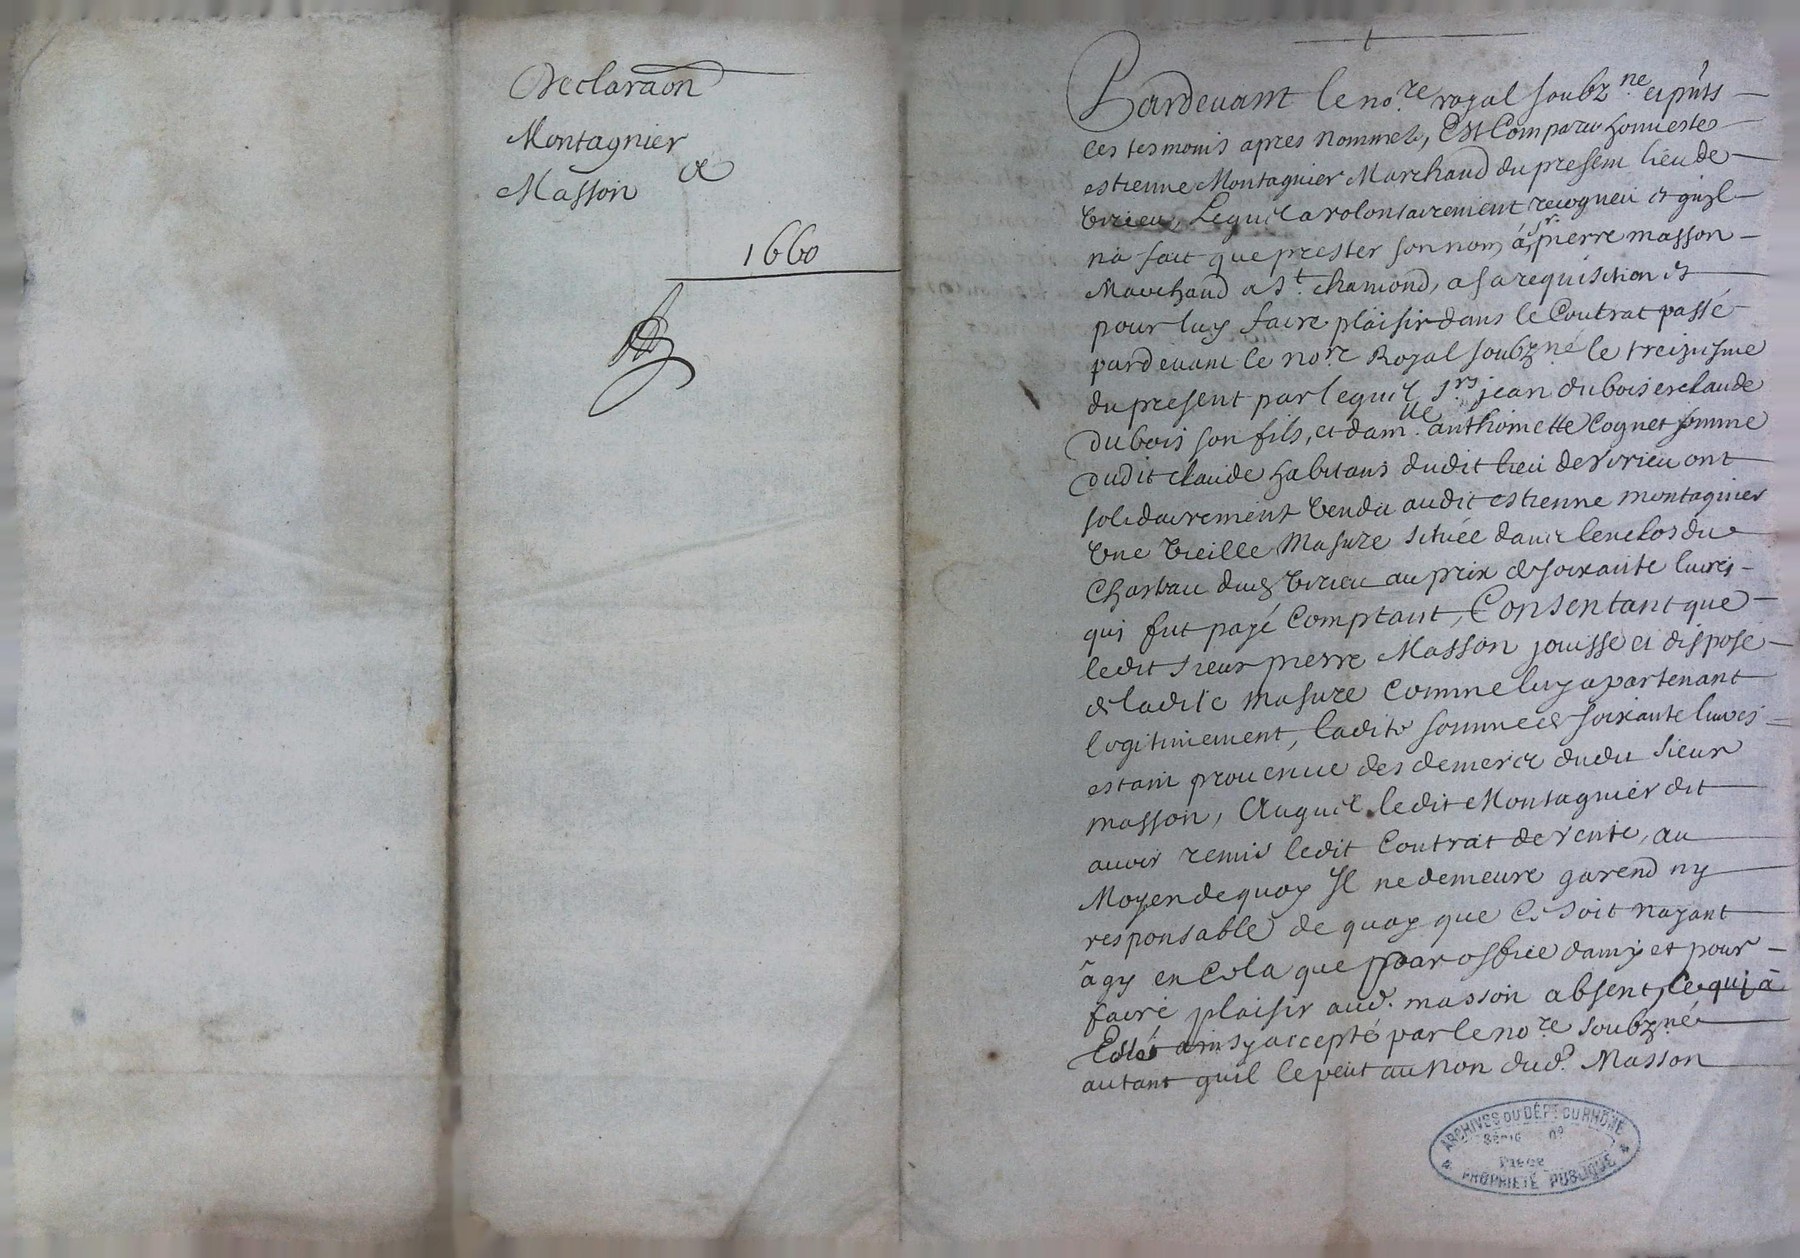 Declaraon
Montagnier
&
Masson
1660
Pardevant le no.re royal soubz.né et pnts
les tesmoins apres nommez, Est Comparu honneste
estienne Montagnier Marchand du present lieu de
Virieu, Lequel a volontairement recogneu et quil
na fait que prester son nom, à sr. pierre masson
Marchand a St. chamond, a sa requisition et
pour luy faire plaisir dans le Contrat passé
pardevant le nore Royal soubzné le treiziesme
du present par lequel Srs jean dubois et claude
dubois son fils, et damlle. anthoinette Cognet femme
dudit claude habitans dudit lieu de virieu ont
solidairement vendu audit estienne montagnier
Une Vieille Masure située dans lenclos du
Chasteau dud Virieu au prix de soixante livres
qui fut payé Comptant, Consentant que
ledit sieur pierre Masson jouisse et dispose
de ladite masure Comme luy apartenant
legitimement, ladite somme de soixante livres
estant provenue des deniers dudit sieur
masson, Auquel ledit Montagnier dit
avoir remis ledit Contrat de vente, au
Moyen de quoy Il ne demeure garend ny
responsable de quoy que Ce soit nayant
agy en Cela que par office damy et pour
faire plaisir aud. masson absent, Ce qui à
Esté ainsy accepté par le nore soubzné
autant quil le peut au Non dud. Masson
ARCHIVES DU DÉPT DU RHÔNE
Série no
Piece
PROPRIÉTÉ PUBLIQUE